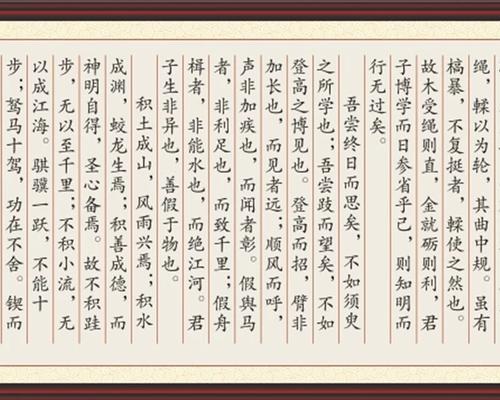 绳，輮以为轮，其曲中规。虽有
槁暴，不复挺者，輮使之然也。
故木受绳则直，金就砺则利，君
子博学而日参省乎己，则知明而
行无过矣。
吾尝终日而思矣，不如须臾
之所学也；吾尝跂而望矣，不如
登高之博见也。登高而招，臂非
加长也，而见者远；顺风而呼，
声非加疾也，而闻者彰。假舆马
者，非利足也，而致千里；假舟
楫者，非能水也，而绝江河。君
子生非异也，善假于物也。
积土成山，风雨兴焉；积水
成渊，蛟龙生焉；积善成德，而
神明自得，圣心备焉。故不积跬
步，无以至千里；不积小流，无
以成江海。骐骥一跃，不能十
步；驽马十驾，功在不舍。锲而